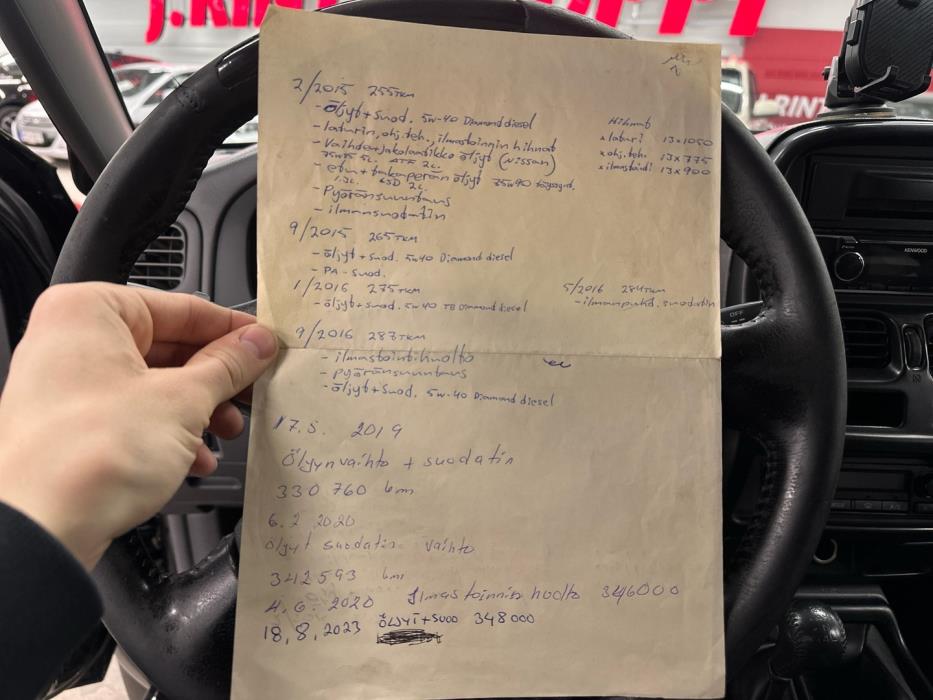 J.RINT
J.RINT
2/2015 255TKM
- Öljyt + suod. 5w-40 Diamond diesel
- laturin, ohj.teh., ilmastoingin hihnat
- Vaihde+jakolaatikko öljyt (Nissan)
75W85 5L. ATF 2L.
- etu + takaperän öljyt 75w90
LSD 2L.
- Pyöränsuuntaus
- ilmansuodatin
Hihnat
x laturi 13x1050
x ohj.teh. 13x775
x ilmastoidi 13x900
9/2015 265TKM
- öljyt + suod. 5w40 Diamond diesel
- PA-suod.
1/2016 275TKM
- öljyt + suod. 5w40 TB Diamond diesel
5/2016 284TKM
- ilmanpuhd. suodatin
9/2016 287TKM
- ilmastointihuolto
- pyöränsuuntaus
- öljyt + suod. 5w-40 Diamond diesel
17.5. 2019
Öljynvaihto + suodatin
330 760 km
6.2 2020
öljyt suodatin vaihto
342593 km
4.6.2020 Ilmastoinnin huolto 346000
18.8.2023 ÖLJYT+SUOD 348000
KENWOOD
OFF